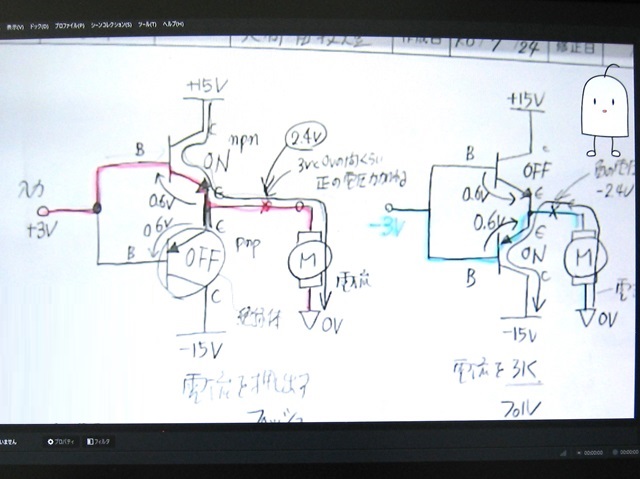 表示(V) ドック(D) プロファイル(P) シーンコレクション(S) ツール(T) ヘルプ(H)
作成日 R6/7/24 修正日
+15V
C
npn
B
ON
2.4V
3Vと0Vの間くらい
正の電圧がかかる
入力
+3V
0.6V
E
0.6V
E
pnp
B
OFF
C
M
電流
0V
絶縁体
-15V
電流を押出す
プッシュ
+15V
C
B
OFF
0.6V
E
-2.4V
-3V
0.6V
E
ON
B
C
M
0V
-15V
電流を引く
プル
いません
プロパティ
フィルタ
00:00:00
00:00:00